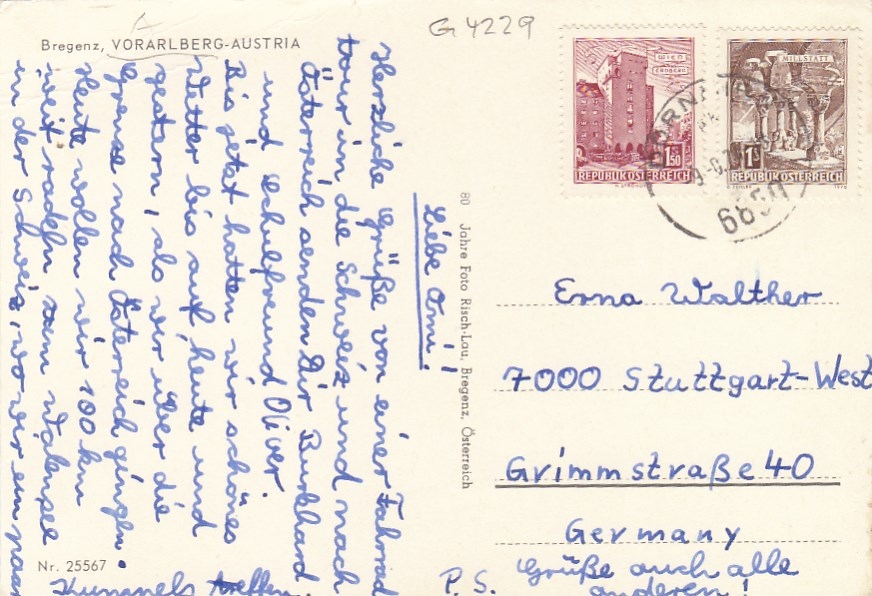 Bregenz, VORARLBERG-AUSTRIA
G 4229
WIEN
ERDBERG
1.50
REPUBLIK ÖSTERREICH
MILLSTATT
1 S
REPUBLIK ÖSTERREICH
6850
Liebe Omi!
Herzliche Grüße von einer Fahrrad
tour in die Schweiz und nach
Österreich senden Dir Burkhard
und Schulfreund Oliver.
Bis jetzt hatten wir schönes
Wetter bis auf heute und
gestern, als wir über die
Grenze nach Österreich gingen.
Heute wollen wir 100 km
weit radeln zum Walensee
in der Schweiz, wo wir ein paar
Kumpels treffen.
80 Jahre Foto Risch-Lau, Bregenz, Österreich
Erna Walther
7000 Stuttgart-West
Grimmstraße 40
Germany
P.S. Grüße auch alle
anderen!
Nr. 25567